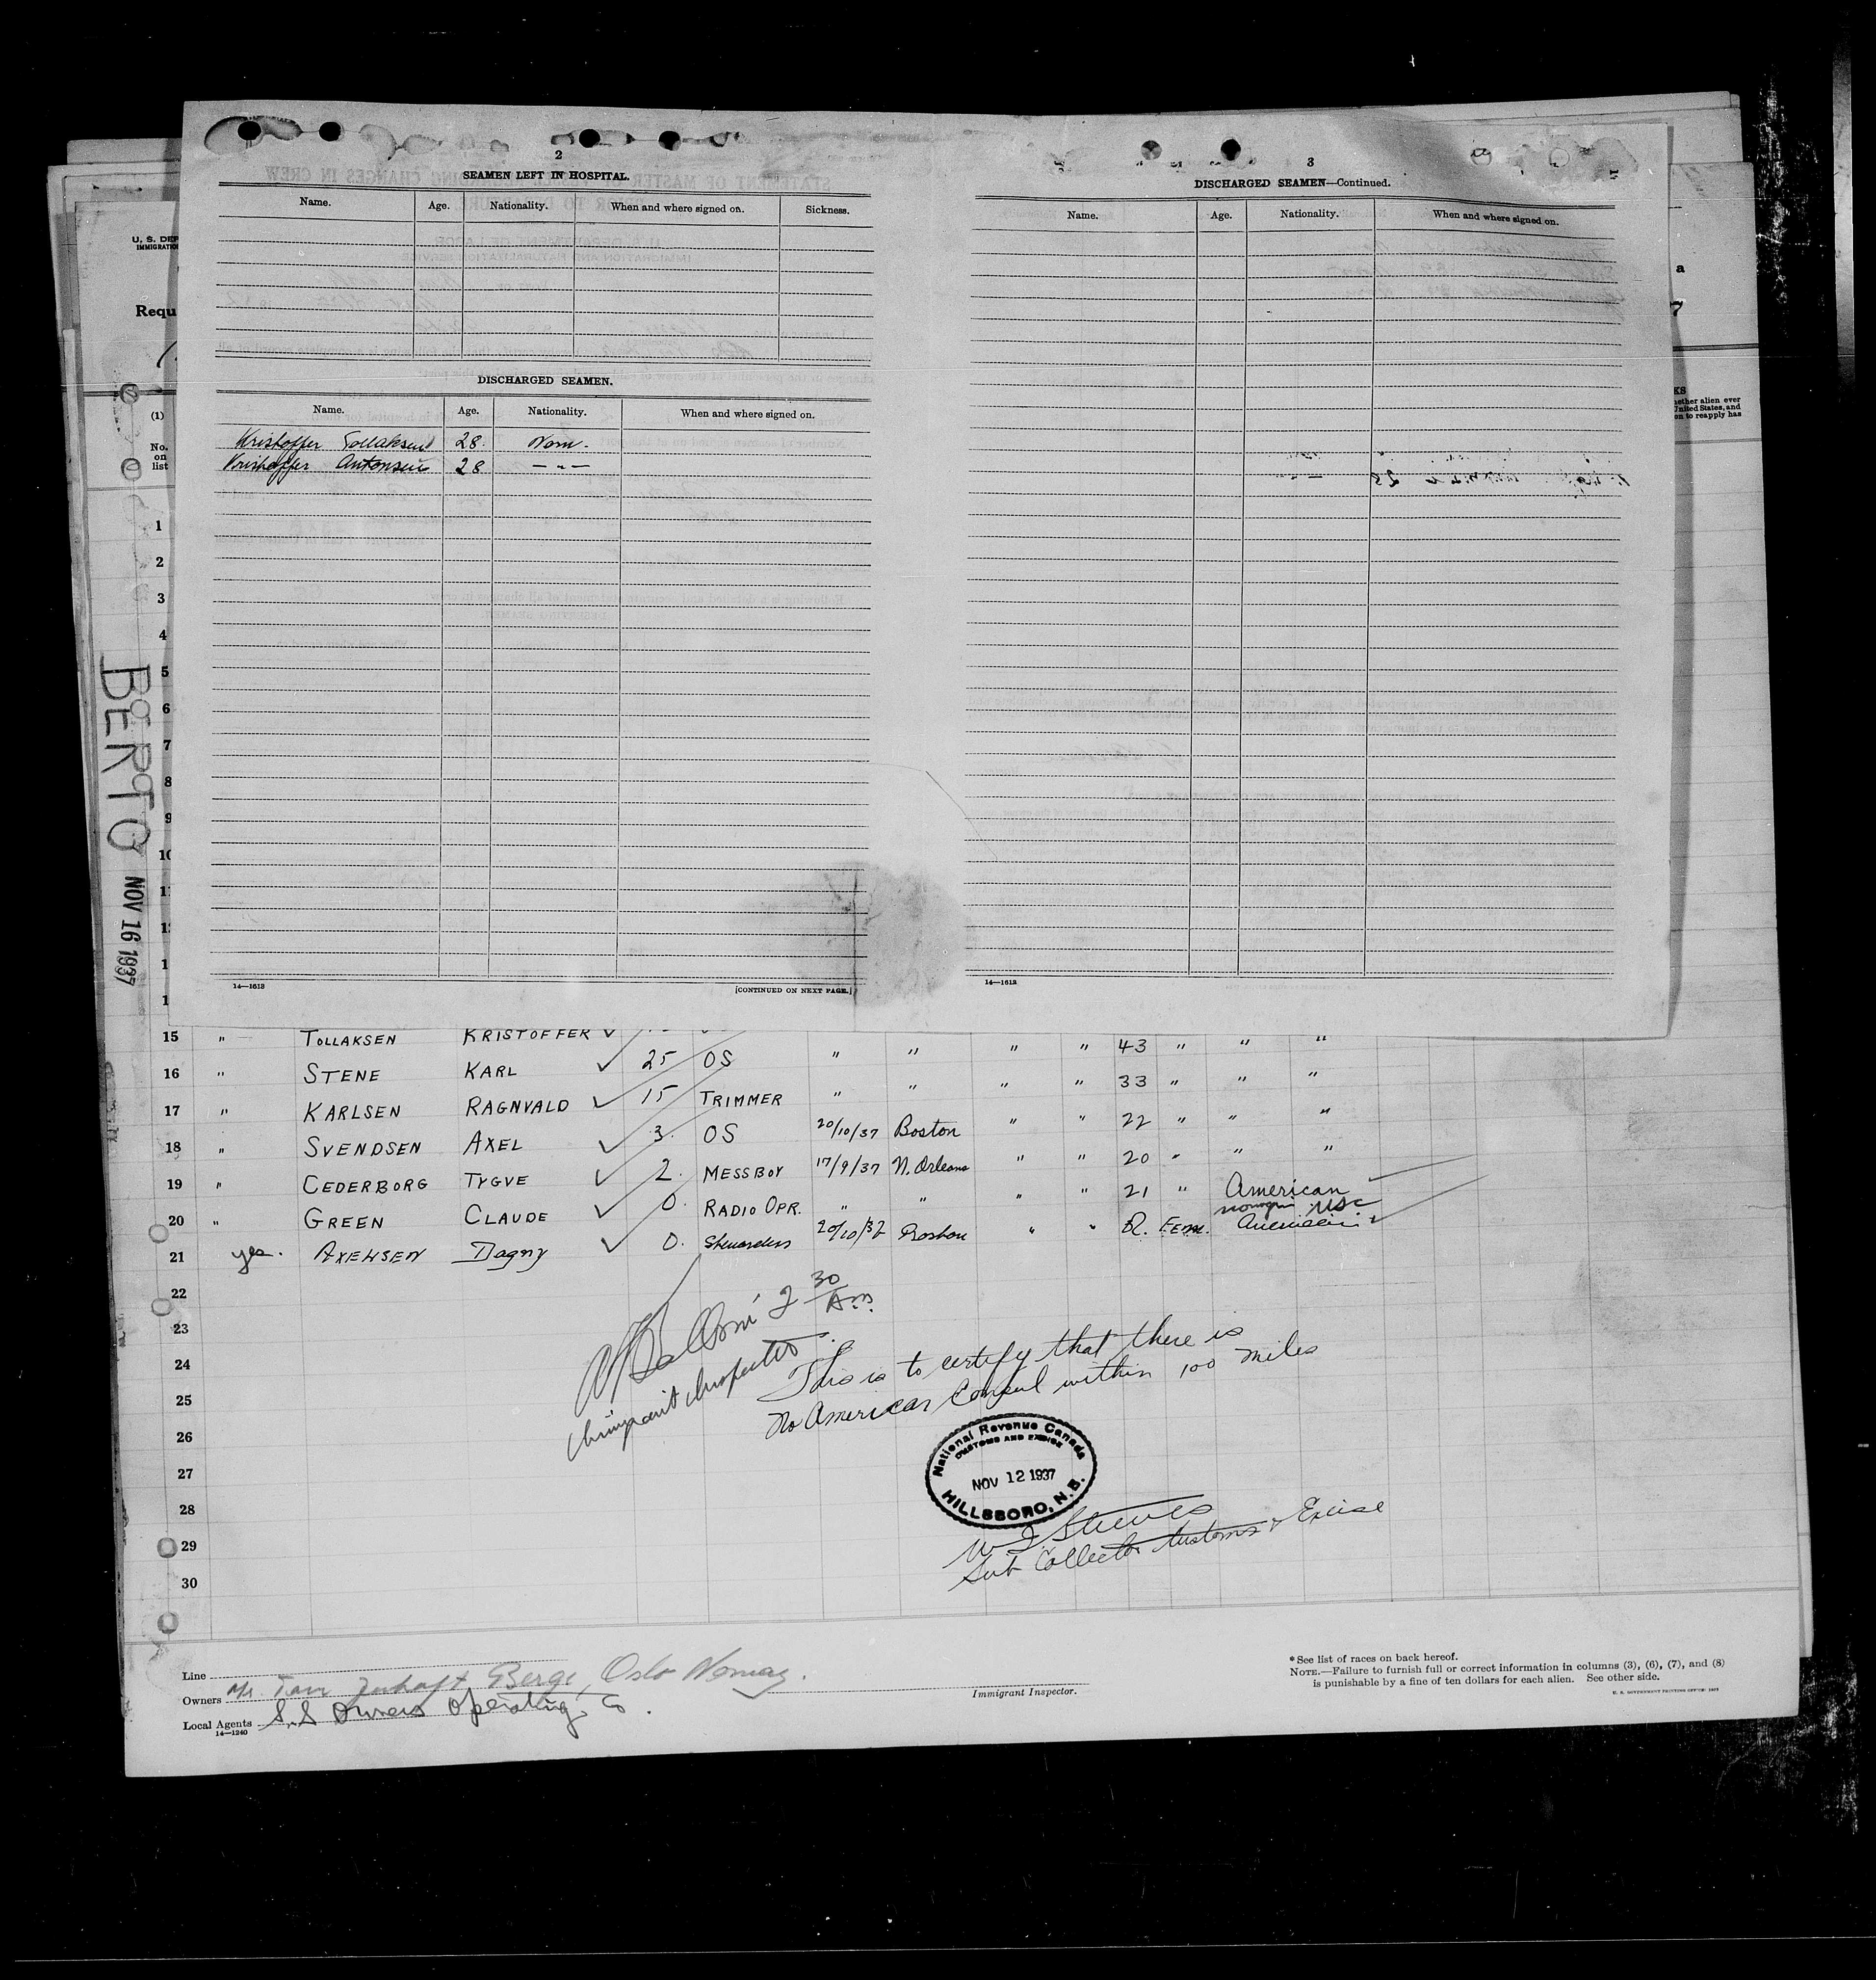 2
SEAMEN LEFT IN HOSPITAL.
Name. Age. Nationality. When and where signed on. Sickness.
DISCHARGED SEAMEN.
Name. Age. Nationality. When and where signed on.
Kristoffer Tollaksen 28. Norw.
Kristoffer Antonsen 28 — " —
14—1613
[CONTINUED ON NEXT PAGE.]
3
DISCHARGED SEAMEN—Continued.
Name. Age. Nationality. When and where signed on.
14—1613
U. S. DEP
IMMIGRATIO
Requ
(1)
No.
on
list
a
7
KS
hether alien ever
United States, and
on to reapply has
BERTO
NOV 16 1937
1
2
3
4
5
6
7
8
9
10
1
1
1
1
15 " TOLLAKSEN KRISTOFFER ✓
16 " STENE KARL ✓ 25 OS " " " " 43 " " "
17 " KARLSEN RAGNVALD ✓ 15 TRIMMER " " " " 33 " " "
18 " SVENDSEN AXEL ✓ 3. OS 20/10/37 Boston " " 22 " " "
19 " CEDERBORG TYGVE ✓ 2. MESSBOY 17/9/37 N. Orleans " " 20 " " "
20 " GREEN CLAUDE ✓ 0. RADIO OPR. " " " " 21 " American
21 yes. AXELSEN Dagny ✓ 0. Stewardess Boston " " Fem. USC
22
23
24
25
26
27
28
29
30
2 30 Am.
Immigrant Inspector
This is to certify that there is
no American Consul within 100 miles
National Revenue Canada
CUSTOMS AND EXCISE
NOV 12 1937
HILLSBORO, N.B.
W J Steeves
Sub Collector Customs & Excise
Line
Owners Berge, Oslo Norway.
Local Agents S.S Owners Operating Co.
14—1240
Immigrant Inspector.
*See list of races on back hereof.
NOTE.—Failure to furnish full or correct information in columns (3), (6), (7), and (8)
is punishable by a fine of ten dollars for each alien. See other side.